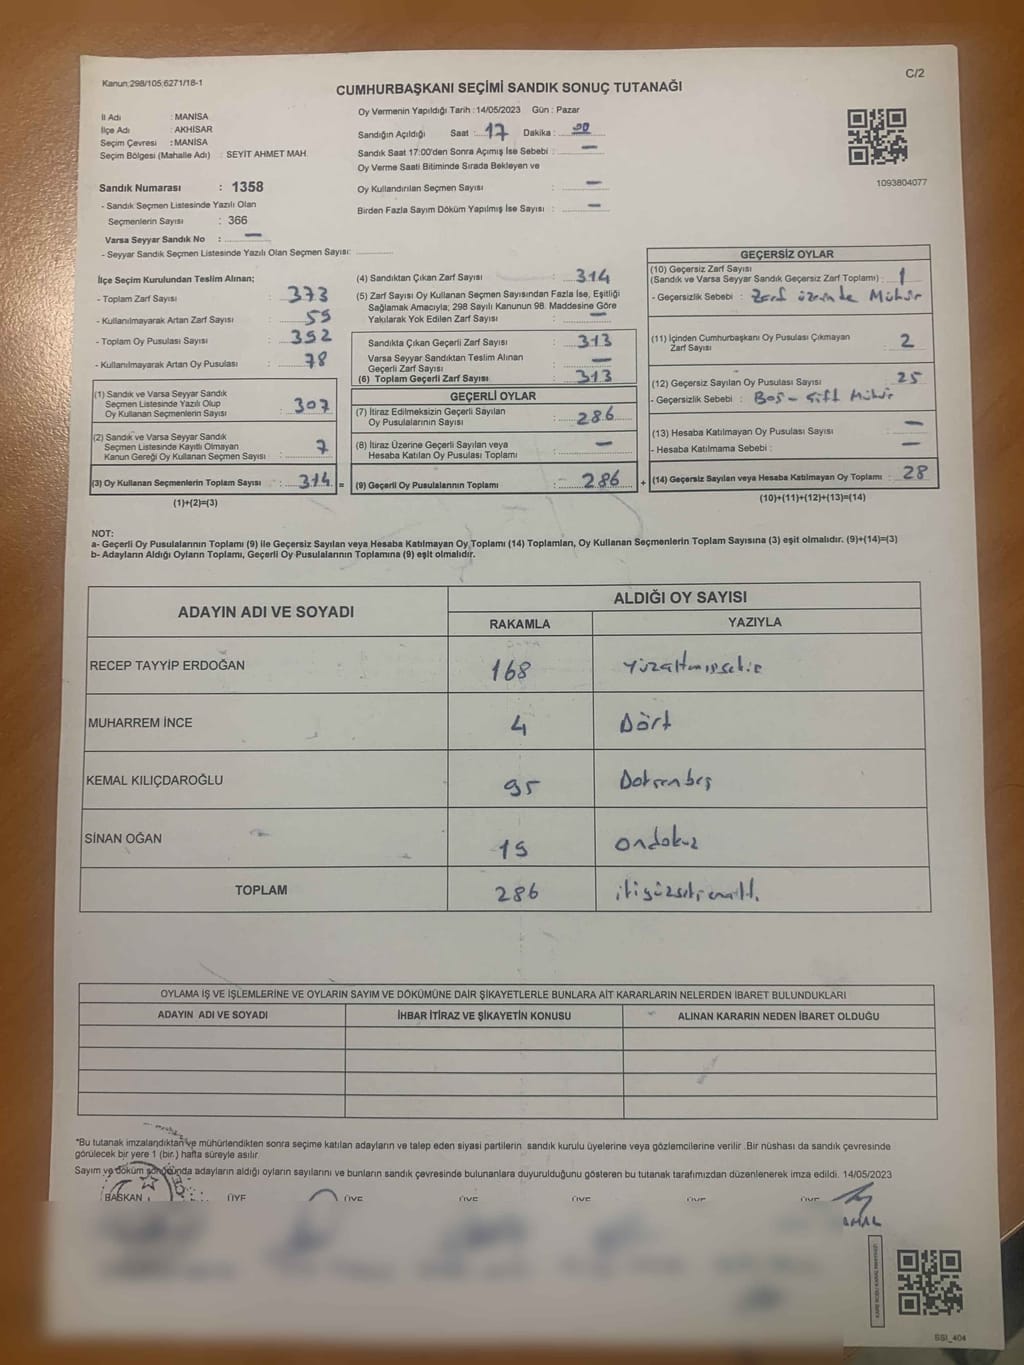 Kanun:298/105;6271/18-1
C/2
CUMHURBAŞKANI SEÇİMİ SANDIK SONUÇ TUTANAĞI
İl Adı : MANİSA
İlçe Adı : AKHİSAR
Seçim Çevresi : MANİSA
Seçim Bölgesi (Mahalle Adı) : SEYİT AHMET MAH.
Oy Vermenin Yapıldığı Tarih : 14/05/2023 Gün : Pazar
Sandığın Açıldığı Saat : 17 Dakika : 00
Sandık Saat 17:00'den Sonra Açımış İse Sebebi : —
Oy Verme Saati Bitiminde Sırada Bekleyen ve
Oy Kullandırılan Seçmen Sayısı : —
Birden Fazla Sayım Döküm Yapılmış İse Sayısı : —
1093804077
Sandık Numarası : 1358
- Sandık Seçmen Listesinde Yazılı Olan
Seçmenlerin Sayısı : 366
Varsa Seyyar Sandık No : —
- Seyyar Sandık Seçmen Listesinde Yazılı Olan Seçmen Sayısı:
İlçe Seçim Kurulundan Teslim Alınan;
- Toplam Zarf Sayısı : 373
- Kullanılmayarak Artan Zarf Sayısı : 59
- Toplam Oy Pusulası Sayısı : 392
- Kullanılmayarak Artan Oy Pusulası : 78
(1) Sandık ve Varsa Seyyar Sandık
Seçmen Listesinde Yazılı Olup
Oy Kullanan Seçmenlerin Sayısı : 307
(2) Sandık ve Varsa Seyyar Sandık
Seçmen Listesinde Kayıtlı Olmayan
Kanun Gereği Oy Kullanan Seçmen Sayısı : 7
(3) Oy Kullanan Seçmenlerin Toplam Sayısı : 314 =
(1)+(2)=(3)
(4) Sandıktan Çıkan Zarf Sayısı : 314
(5) Zarf Sayısı Oy Kullanan Seçmen Sayısından Fazla İse, Eşitliği
Sağlamak Amacıyla; 298 Sayılı Kanunun 98. Maddesine Göre
Yakılarak Yok Edilen Zarf Sayısı : —
Sandıkla Çıkan Geçerli Zarf Sayısı : 313
Varsa Seyyar Sandıktan Teslim Alınan
Geçerli Zarf Sayısı : —
(6) Toplam Geçerli Zarf Sayısı : 313
GEÇERLİ OYLAR
(7) İtiraz Edilmeksizin Geçerli Sayılan
Oy Pusulalarının Sayısı : 286
(8) İtiraz Üzerine Geçerli Sayılan veya
Hesaba Katılan Oy Pusulası Toplamı : —
(9) Geçerli Oy Pusulalarının Toplamı : 286 +
GEÇERSİZ OYLAR
(10) Geçersiz Zarf Sayısı
(Sandık ve Varsa Seyyar Sandık Geçersiz Zarf Toplamı) : 1
- Geçersizlik Sebebi : Zarf üzerinde Mühür
(11) İçinden Cumhurbaşkanı Oy Pusulası Çıkmayan
Zarf Sayısı : 2
(12) Geçersiz Sayılan Oy Pusulası Sayısı : 25
- Geçersizlik Sebebi : Boş - Çift Mühür
(13) Hesaba Katılmayan Oy Pusulası Sayısı : —
- Hesaba Katılmama Sebebi : —
(14) Geçersiz Sayılan veya Hesaba Katılmayan Oy Toplamı : 28
(10)+(11)+(12)+(13)=(14)
NOT:
a- Geçerli Oy Pusulalarının Toplamı (9) ile Geçersiz Sayılan veya Hesaba Katılmayan Oy Toplamı (14) Toplamları, Oy Kullanan Seçmenlerin Toplam Sayısına (3) eşit olmalıdır. (9)+(14)=(3)
b- Adayların Aldığı Oyların Toplamı, Geçerli Oy Pusulalarının Toplamına (9) eşit olmalıdır.
ADAYIN ADI VE SOYADI ALDIĞI OY SAYISI
RAKAMLA YAZIYLA
RECEP TAYYİP ERDOĞAN 168 Yüzaltmışsekiz
MUHARREM İNCE 4 Dört
KEMAL KILIÇDAROĞLU 95 Doksanbeş
SİNAN OĞAN 19 ondokuz
TOPLAM 286 ikiyüzseksenaltı
OYLAMA İŞ VE İŞLEMLERİNE VE OYLARIN SAYIM VE DÖKÜMÜNE DAİR ŞİKAYETLERLE BUNLARA AİT KARARLARIN NELERDEN İBARET BULUNDUKLARI
ADAYIN ADI VE SOYADI İHBAR İTİRAZ VE ŞİKAYETİN KONUSU ALINAN KARARIN NEDEN İBARET OLDUĞU
*Bu tutanak imzalandıktan ve mühürlendikten sonra seçime katılan adayların ve talep eden siyasi partilerin, sandık kurulu üyelerine veya gözlemcilerine verilir .Bir nüshası da sandık çevresinde
görülecek bir yere 1 (bir.) hafta süreyle asılır.
Sayım ve döküm sonucunda adayların aldığı oyların sayılarını ve bunların sandık çevresinde bulunanlara duyurulduğunu gösteren bu tutanak tarafımızdan düzenlenerek imza edildi. 14/05/2023
BAŞKAN ÜYE ÜYE ÜYE ÜYE ÜYE ÜYE
SSI_404